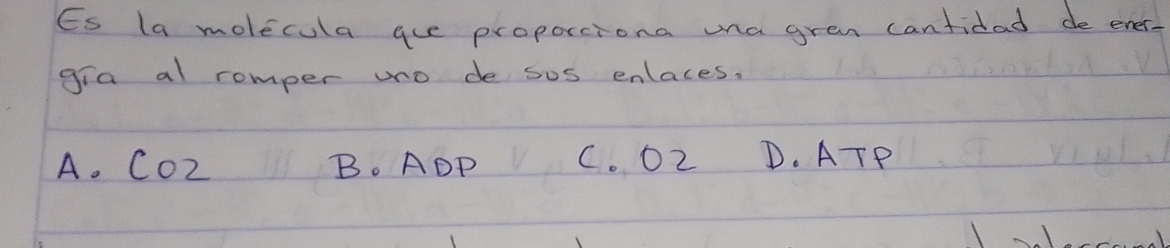 Es la molécula que proporciona una gran cantidad de ener-
gía al romper uno de sus enlaces.
A. CO2 B. ADP C. O2 D. ATP